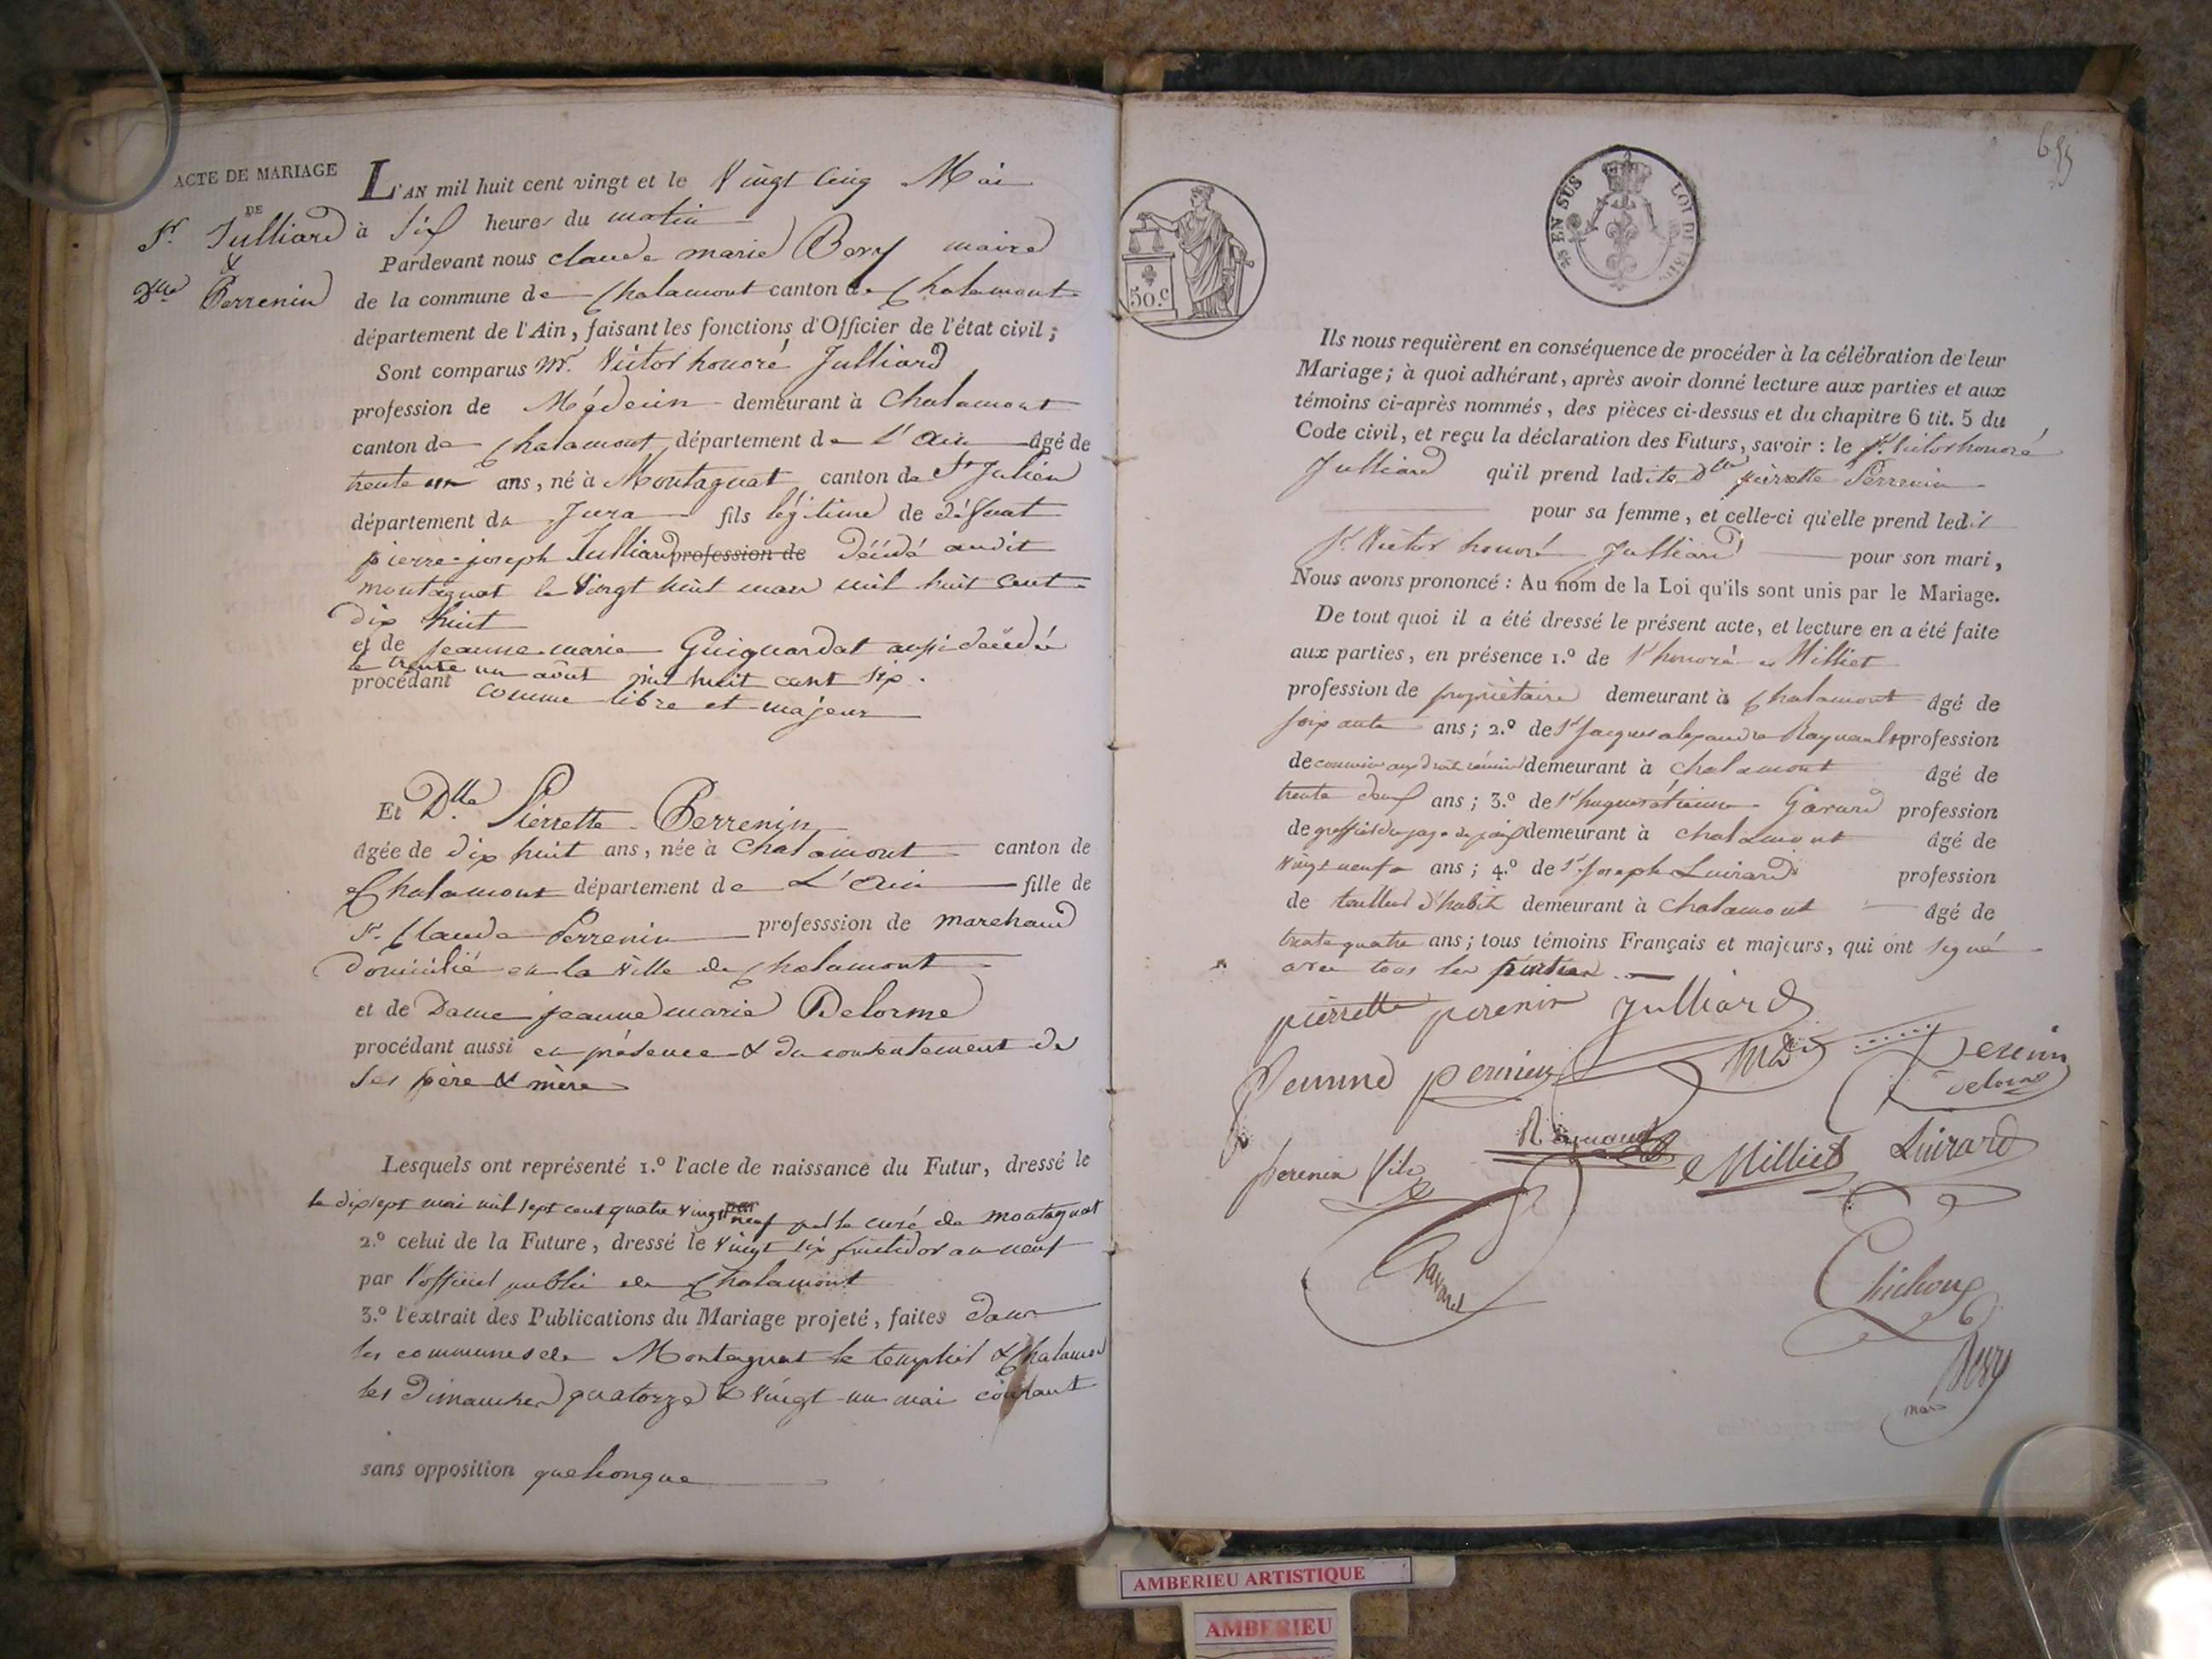 ACTE DE MARIAGE
DE
Sr. Julliard
&
Dlle Perrenin
L'AN mil huit cent vingt et le Vingt Cinq Mai
à Six heures du matin
Pardevant nous claude marie Bery maire
de la commune de Chalamont canton de Chalamont
département de l'Ain, faisant les fonctions d'Officier de l'état civil;
Sont comparus Mr. Victor honoré Julliard
profession de Médecin demeurant à Chalamont
canton de Chalamont département de L'Ain âgé de
trente un ans, né à Montagnat canton de St Julien
département du Jura fils légitime de défunt
pierre-joseph Julliard profession de décédé audit
montagnat le Vingt huit mars mil huit cent
dix huit
et de jeanne marie Guiguardat aussi décédée
le trente un août mil huit cent six.
procédant comme libre et majeur
Et Dlle Pierrette Perrenin
âgée de dix huit ans, née à Chalamont canton de
Chalamont département de L'Ain fille de
Sr. Claude Perrenin professsion de marchand
domicilié en la Ville de Chalamont
et de Dame jeanne marie Delorme
procédant aussi en présence & du consentement de
ses père & mère
Lesquels ont représenté 1.º l'acte de naissance du Futur, dressé le
le dixsept mai mil sept cent quatre vingt neuf par le curé de montagnat
2.º celui de la Future, dressé le vingt six fructidor an neuf
par l'officier public de Chalamont
3.º l'extrait des Publications du Mariage projeté, faites dans
les communes de Montagnat le templier & Chalamont
les Dimanches quatorze & vingt-un mai courant
sans opposition quelconque
655
50.c
EN SUS LOI DE 1816
Ils nous requièrent en conséquence de procéder à la célébration de leur
Mariage; à quoi adhérant, après avoir donné lecture aux parties et aux
témoins ci-après nommés, des pièces ci-dessus et du chapitre 6 tit. 5 du
Code civil, et reçu la déclaration des Futurs, savoir: le Sr. Victor honoré
Julliard qu'il prend ladite Dlle pierrette Perrenin
pour sa femme, et celle-ci qu'elle prend ledit
Sr Victor honoré Julliard pour son mari,
Nous avons prononcé: Au nom de la Loi qu'ils sont unis par le Mariage.
De tout quoi il a été dressé le présent acte, et lecture en a été faite
aux parties, en présence 1.º de Sr honoré Milliet
profession de propriétaire demeurant à Chalamont âgé de
soixante ans; 2.º de Sr Jacques alexandre Raynaud profession
de demeurant à Chalamont âgé de
trente deux ans; 3.º de Sr hugues étienne Gavard profession
de greffier de juge de paix demeurant à chalamont âgé de
vingt neuf ans; 4.º de Sr Joseph Luirard profession
de tailleur d'habit demeurant à Chalamont âgé de
trente quatre ans; tous témoins Français et majeurs, qui ont signé
avec tous les parties
pierrette perenin Julliard
perenin
Perenin
delorme
perenin fils Raynaud Milliet Luirard
Gavard
Chichoux
Bery
maire
AMBERIEU ARTISTIQUE
AMBERIEU